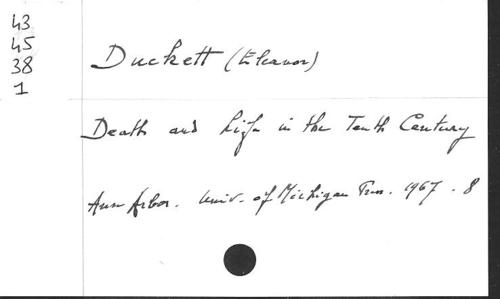 43
45
38
1
Duckett (Eleanor)
Death and Life in the Tenth Century
Ann Arbor. Univ. of Michigan Press. 1967. 8